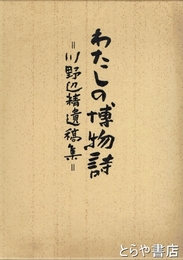 わたしの博物詩
=川野辺精遺稿集=
とらや書店